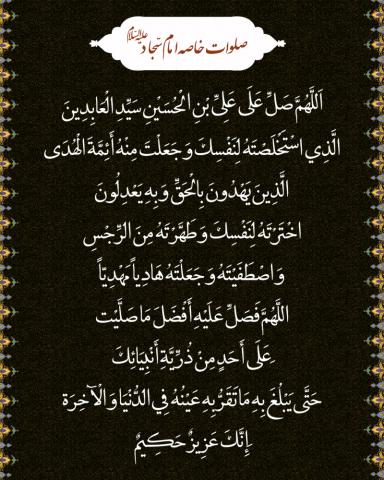 صلوات خاصه امام سجاد علیه‌السلام
اَللّٰهُمَّ صَلِّ عَلَى عَلِيِّ بْنِ الْحُسَيْنِ سَيِّدِ الْعَابِدِينَ
الَّذِي اسْتَخْلَصْتَهُ لِنَفْسِكَ وَ جَعَلْتَ مِنْهُ أَئِمَّةَ الْهُدَى
الَّذِينَ يَهْدُونَ بِالْحَقِّ وَ بِهِ يَعْدِلُونَ
اخْتَرْتَهُ لِنَفْسِكَ وَ طَهَّرْتَهُ مِنَ الرِّجْسِ
وَ اصْطَفَيْتَهُ وَ جَعَلْتَهُ هَادِياً مَهْدِيّاً
اللّٰهُمَّ فَصَلِّ عَلَيْهِ أَفْضَلَ مَا صَلَّيْتَ
عَلَى أَحَدٍ مِنْ ذُرِّيَّةِ أَنْبِيَائِكَ
حَتَّى يَبْلُغَ بِهِ مَا تَقَرُّ بِهِ عَيْنُهُ فِي الدُّنْيَا وَ الْآخِرَة
إِنَّكَ عَزِيزٌ حَكِيمٌ